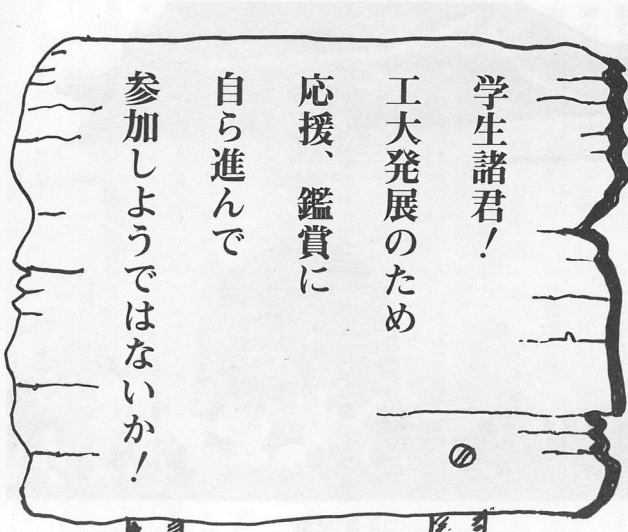 学生諸君！
工大発展のため
応援、鑑賞に
自ら進んで
参加しようではないか！